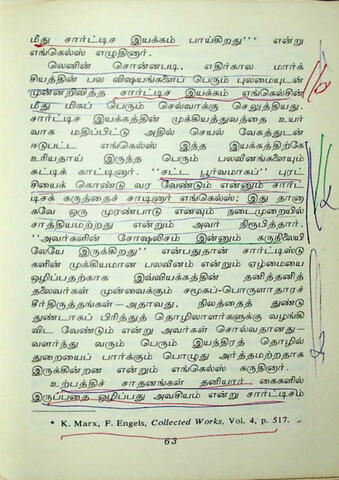 மீது சார்ட்டிச இயக்கம் பாய்கிறது"* என்று
எங்கெல்ஸ் எழுதினார்.
லெனின் சொன்னபடி, எதிர்கால மார்க்
சியத்தின் பல விஷயங்களைப் பெரும் புலமையுடன்
முன்னறிவித்த சார்ட்டிச இயக்கம் எங்கெல்சின்
மீது மிகப் பெரும் செல்வாக்கு செலுத்தியது.
சார்ட்டிச இயக்கத்தின் முக்கியத்துவத்தை உயர்
வாக மதிப்பிட்டு அதில் செயல் வேகத்துடன்
ஈடுபட்ட எங்கெல்ஸ் இந்த இயக்கத்திற்கே
உரியதாய் இருந்த பெரும் பலவீனங்களையும்
சுட்டிக் காட்டினார். "சட்ட பூர்வமாகப்" புரட்
சியைக் கொண்டு வர வேண்டும் என்னும் சார்ட்
டிசக் கருத்தைச் சாடினார் எங்கெல்ஸ்; இது தானா
கவே ஒரு முரண்பாடு எனவும் நடைமுறையில்
சாத்தியமற்றது என்றும் அவர் நிரூபித்தார்.
"அவர்களின் சோஷலிசம் இன்னும் கருநிலையி
லேயே இருக்கிறது" என்பதுதான் சார்ட்டிஸ்டு
களின் முக்கியமான பலவீனம் என்றும் ஏழ்மையை
ஒழிப்பதற்காக இவ்வியக்கத்தின் தனித்தனித்
தலைவர்கள் முன்வைக்கும் சமூகப்-பொருளாதாரச்
சீர்திருத்தங்கள்—அதாவது, நிலத்தைத் துண்டு
துண்டாகப் பிரித்துத் தொழிலாளர்களுக்கு வழங்கி
விட வேண்டும் என்று அவர்கள் சொல்வதானது—
வளர்ந்து வரும் பெரும் இயந்திரத் தொழில்
துறையைப் பார்க்கும் பொழுது அர்த்தமற்றதாக
இருக்கின்றன என்றும் எங்கெல்ஸ் கருதினார்.
உற்பத்திச் சாதனங்கள் தனியார் கைகளில்
இருப்பதை ஒழிப்பது அவசியம் என்று சார்ட்டிசம்
* K. Marx, F. Engels, Collected Works, Vol. 4, p. 517.
63